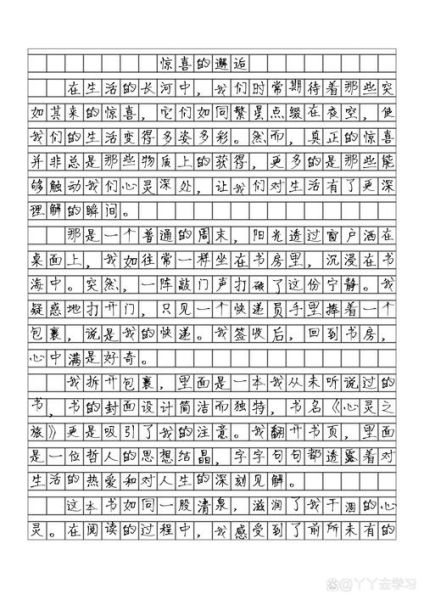 惊喜的邂逅
在生活的长河中，我们时常期待着那些突
如其来的惊喜，它们如同繁星点缀在夜空，使
我们的生活变得多姿多彩。然而，真正的惊喜
并非总是那些物质上的获得，更多的是那些能
够触动我们心灵深处，让我们对生活有了更深
理解的瞬间。
那是一个普通的周末，阳光透过窗户洒在
桌面上，我如往常一样坐在书房里，沉浸在书
海中。突然，一阵敲门声打破了这份宁静。我
疑惑地打开门，只见一个快递员手里捧着一个
包裹，说是我的快递。我签收后，回到书房，
心中满是好奇。
我拆开包裹，里面是一本我从未听说过的
书，书的封面设计简洁而独特，书名《心灵之
旅》更是吸引了我的注意。我翻开书页，里面
是一位哲人的思想结晶，字字句句都透露着对
生活的热爱和对人生的深刻见解。
这本书如同一股清泉，滋润了我干涸的心
灵。在阅读的过程中，我感受到了前所未有的
@丫丫去学习